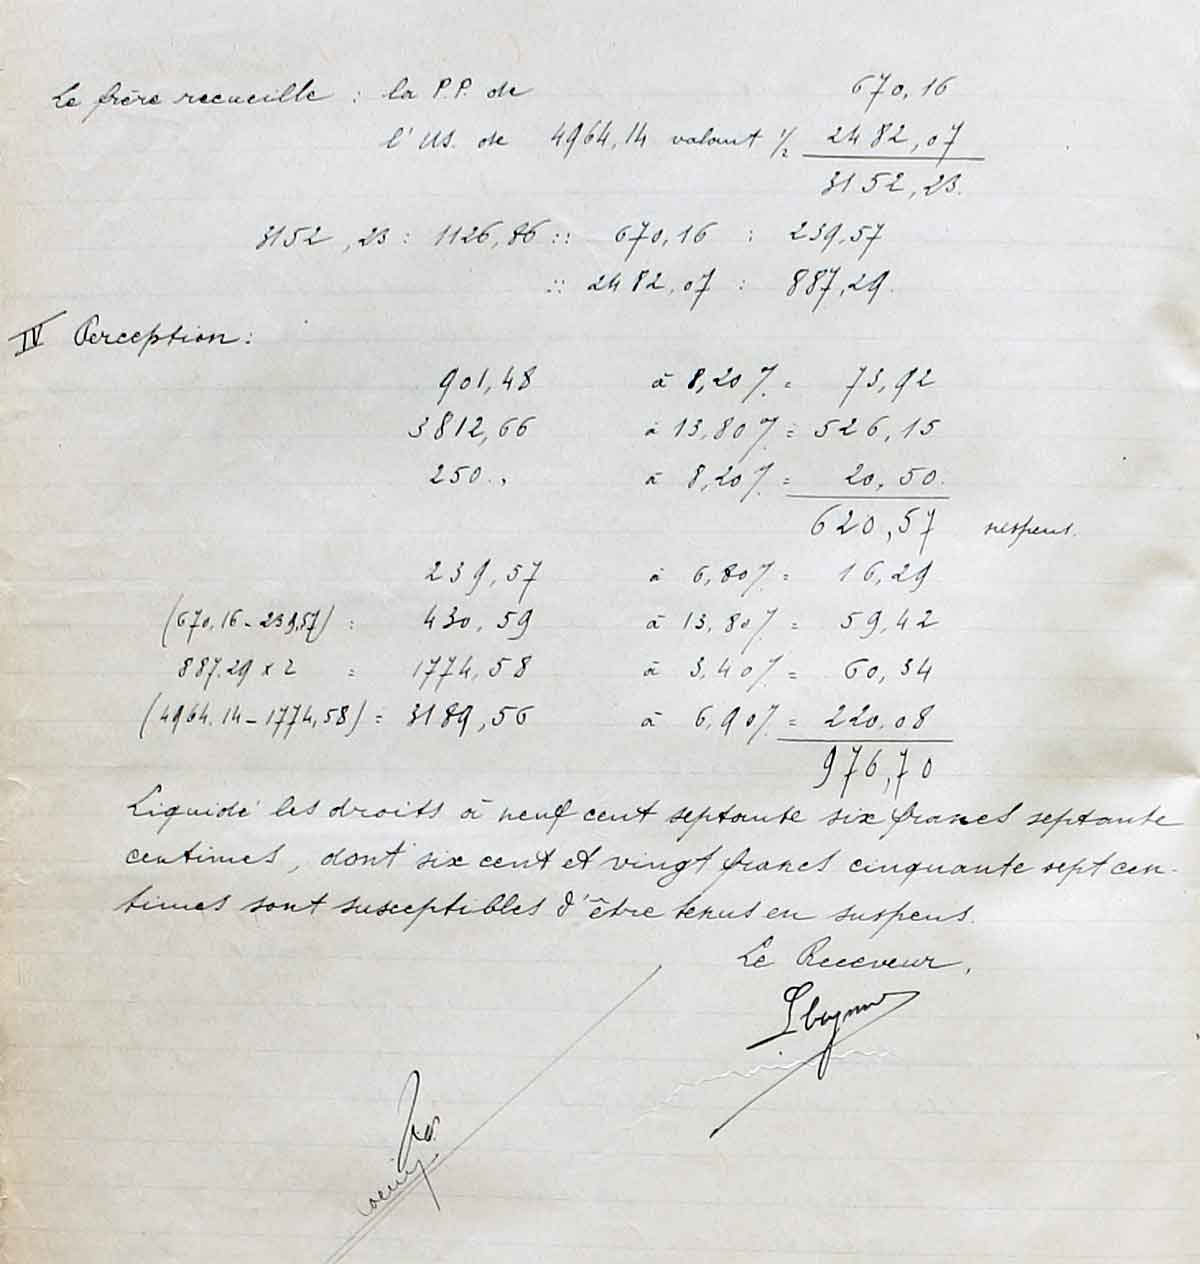 Le frère recueille : la P.P. de 670,16
l'us. de 4964,14 valant 1/2 2482,07
3152,23.
3152,23 : 1126,86 :: 670,16 : 239,57
:: 2482,07 : 887,29.
IV Perception :
901,48 à 8,20% = 73,92
3812,66 à 13,80% = 526,15
250., à 8,20% = 20,50.
620,57 suspens.
239,57 à 6,80% = 16,29
(670,16-239,57) : 430,59 à 13,80% = 59,42
887.29 x 2 = 1774,58 à 3,40% = 60,34
(4964.14-1774,58) = 3189,56 à 6,90% = 220,08
976,70
Liquidé les droits à neuf cent septante six francs septante
centimes, dont six cent et vingt francs cinquante sept cen-
times sont susceptibles d'être tenus en suspens.
Le Receveur,